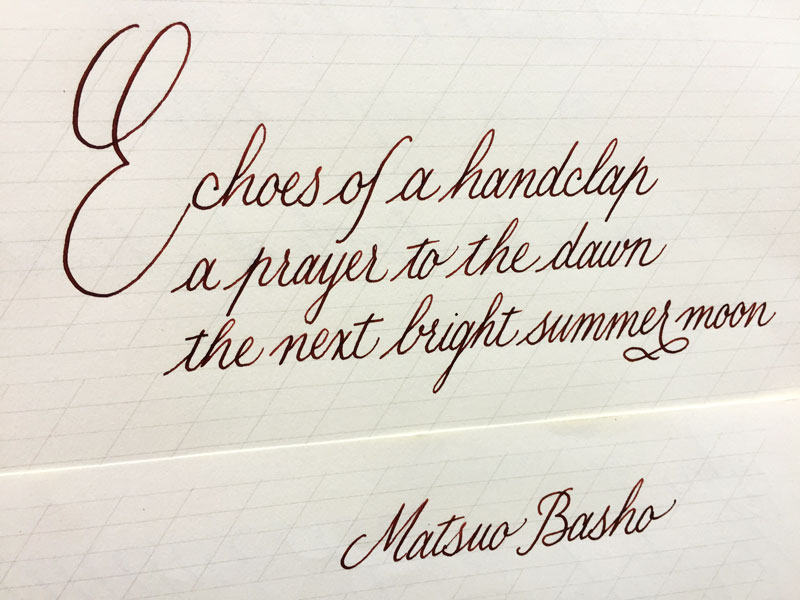 Echoes of a handclap
a prayer to the dawn
the next bright summer moon
Matsuo Basho